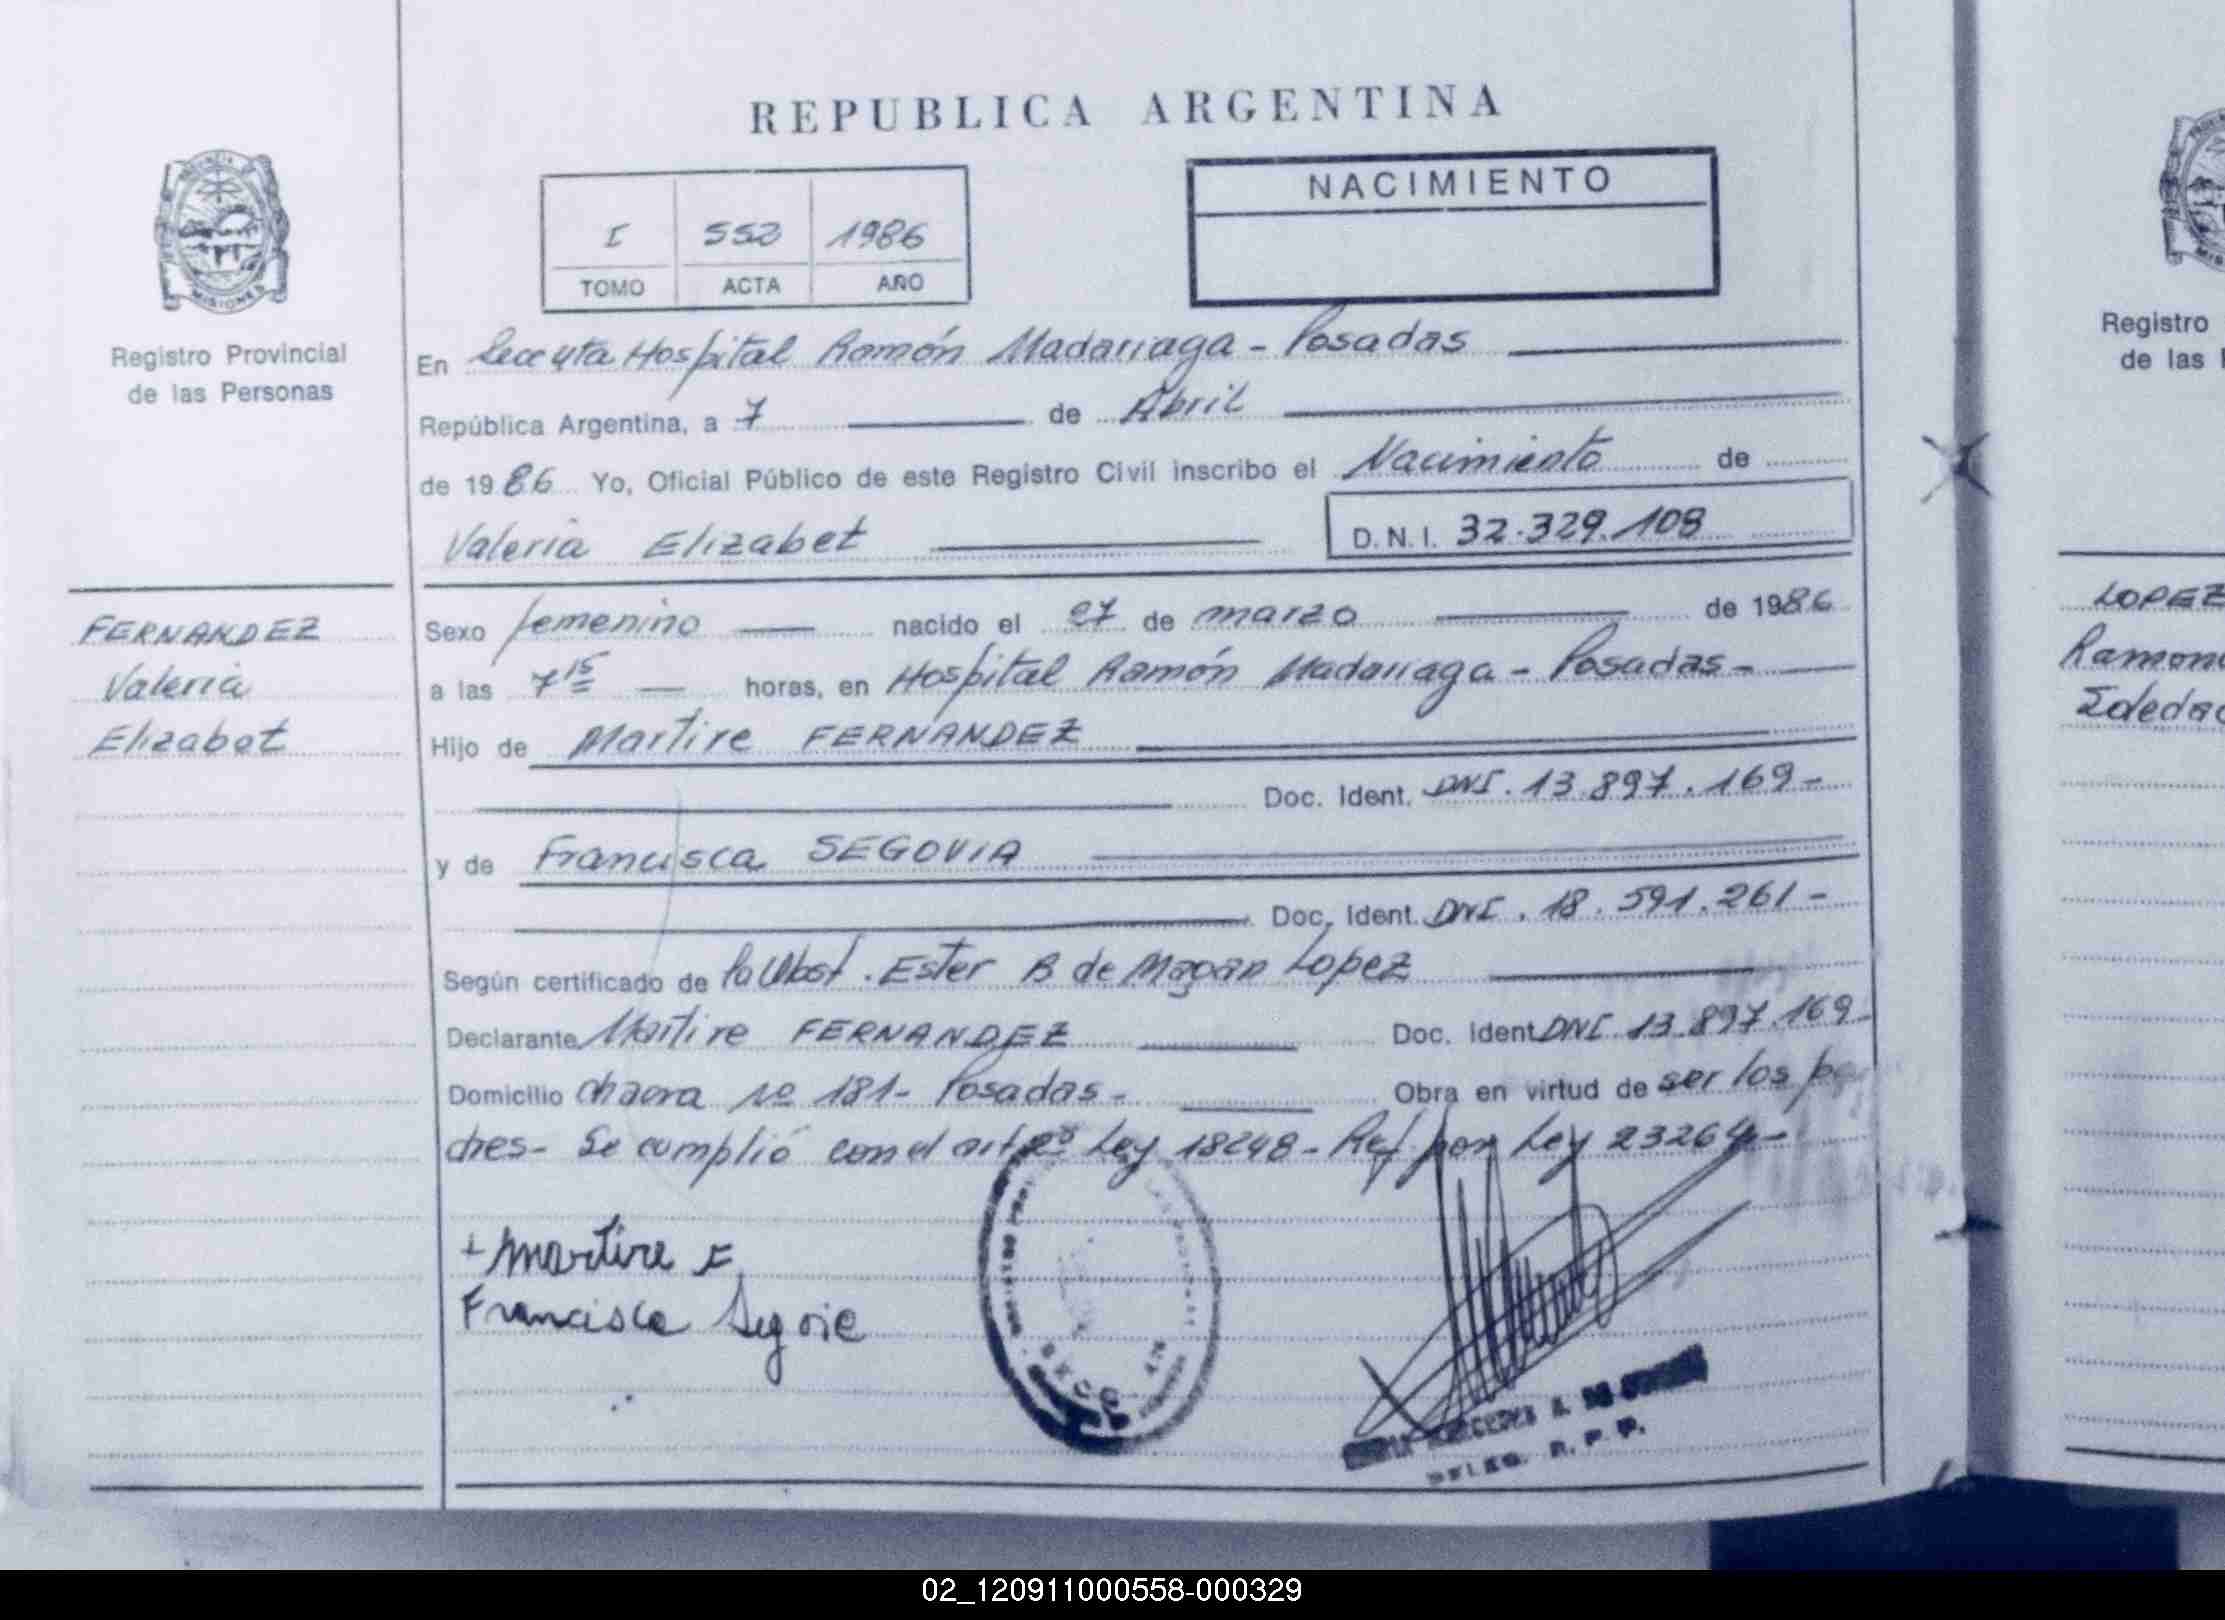 REPUBLICA ARGENTINA
PROVINCIA
MISIONES
Registro Provincial
de las Personas
I 552 1986
TOMO ACTA AÑO
NACIMIENTO
En Hospital Ramón Madariaga - Posadas
República Argentina, a 7 de Abril
de 1986 Yo, Oficial Público de este Registro Civil inscribo el Nacimiento de
Valeria Elizabet D.N.I. 32.329.108
FERNANDEZ
Valeria
Elizabet
Sexo femenino nacido el 27 de marzo de 1986
a las 7 15 horas, en Hospital Ramón Madariaga - Posadas -
Hijo de Martire FERNANDEZ
Doc. Ident. DNI. 13.897.169-
y de Francisca SEGOVIA
Doc. Ident. DNI. 18.591.261-
Según certificado de la Obst. Ester B de Magan Lopez
Declarante Martire FERNANDEZ Doc. Ident DNI 13.897.169-
Domicilio chacra Nº 181- Posadas- Obra en virtud de ser los pa
dres- Se cumplió con el art 2º Ley 18248- Ref. por Ley 23264-
+ Martire F
Francisca
DELEG. R. P. P.
Registro
de las
LOPEZ
Ramona
02_120911000558-000329